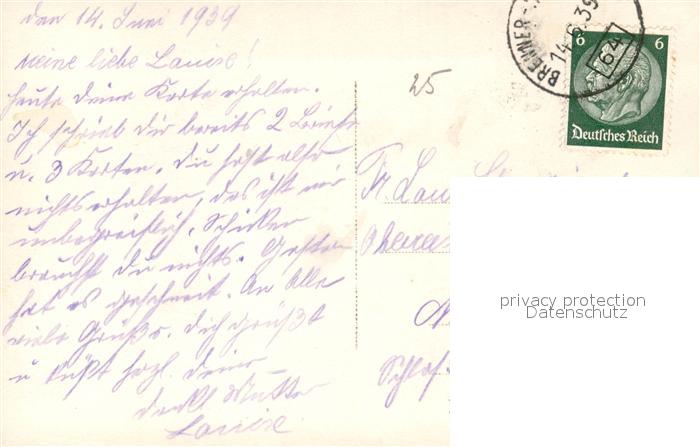 den 14. Juni 1939
meine liebe Louise!
heute deine Karte erhalten.
Ich schrieb dir bereits 2 Briefe
u. 3 Karten. Du hast also
nichts erhalten, das ist mir
unbegreiflich. Schicken
brauchst du nichts. Gestern
hat es geschneit. An Alle
viele Grüße. Dich grüßt
u küßt herzl. deine
dankb. Mutter
Louise.
25
BRENNER
14.6.39
64
6 6
Deutsches Reich
Fr.
privacy protection
Datenschutz